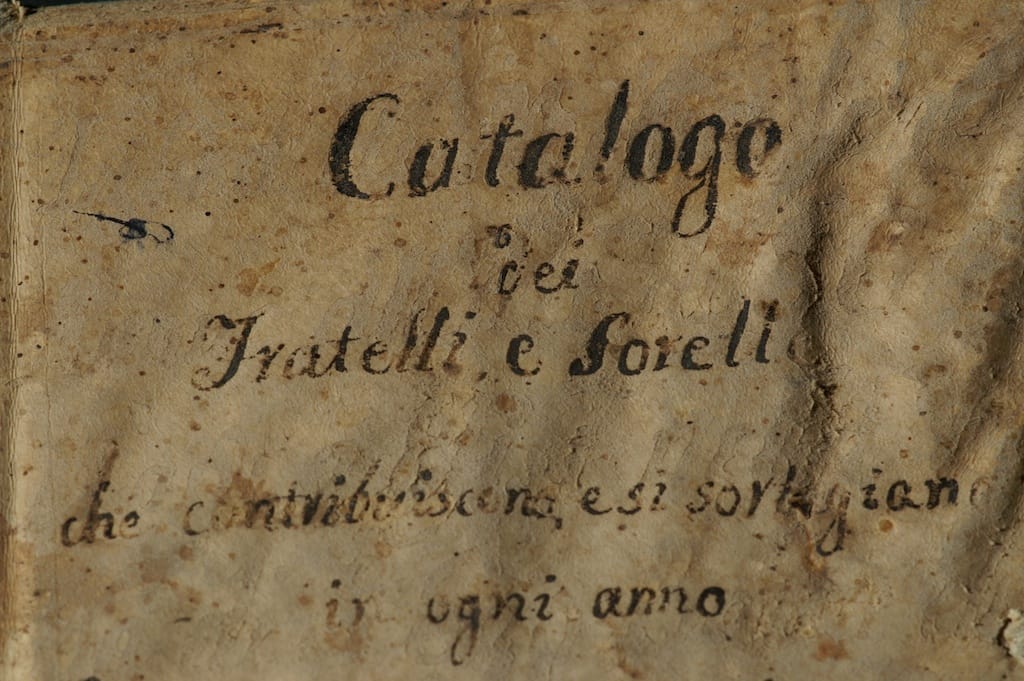 Catalogo
dei
Fratelli, e Sorelle
che contribuiscono, e si sorteggiano
in ogni anno